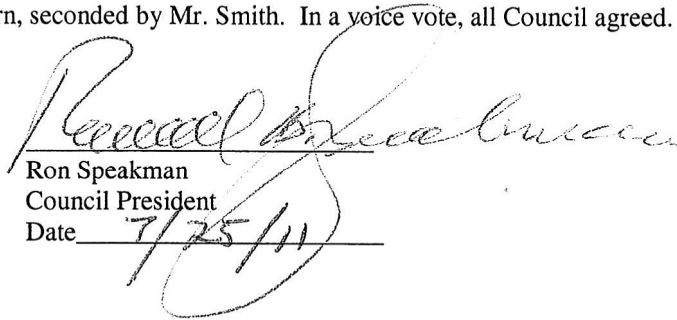 rn, seconded by Mr. Smith. In a voice vote, all Council agreed.
Ron Speakman
Council President
Date 7/25/11